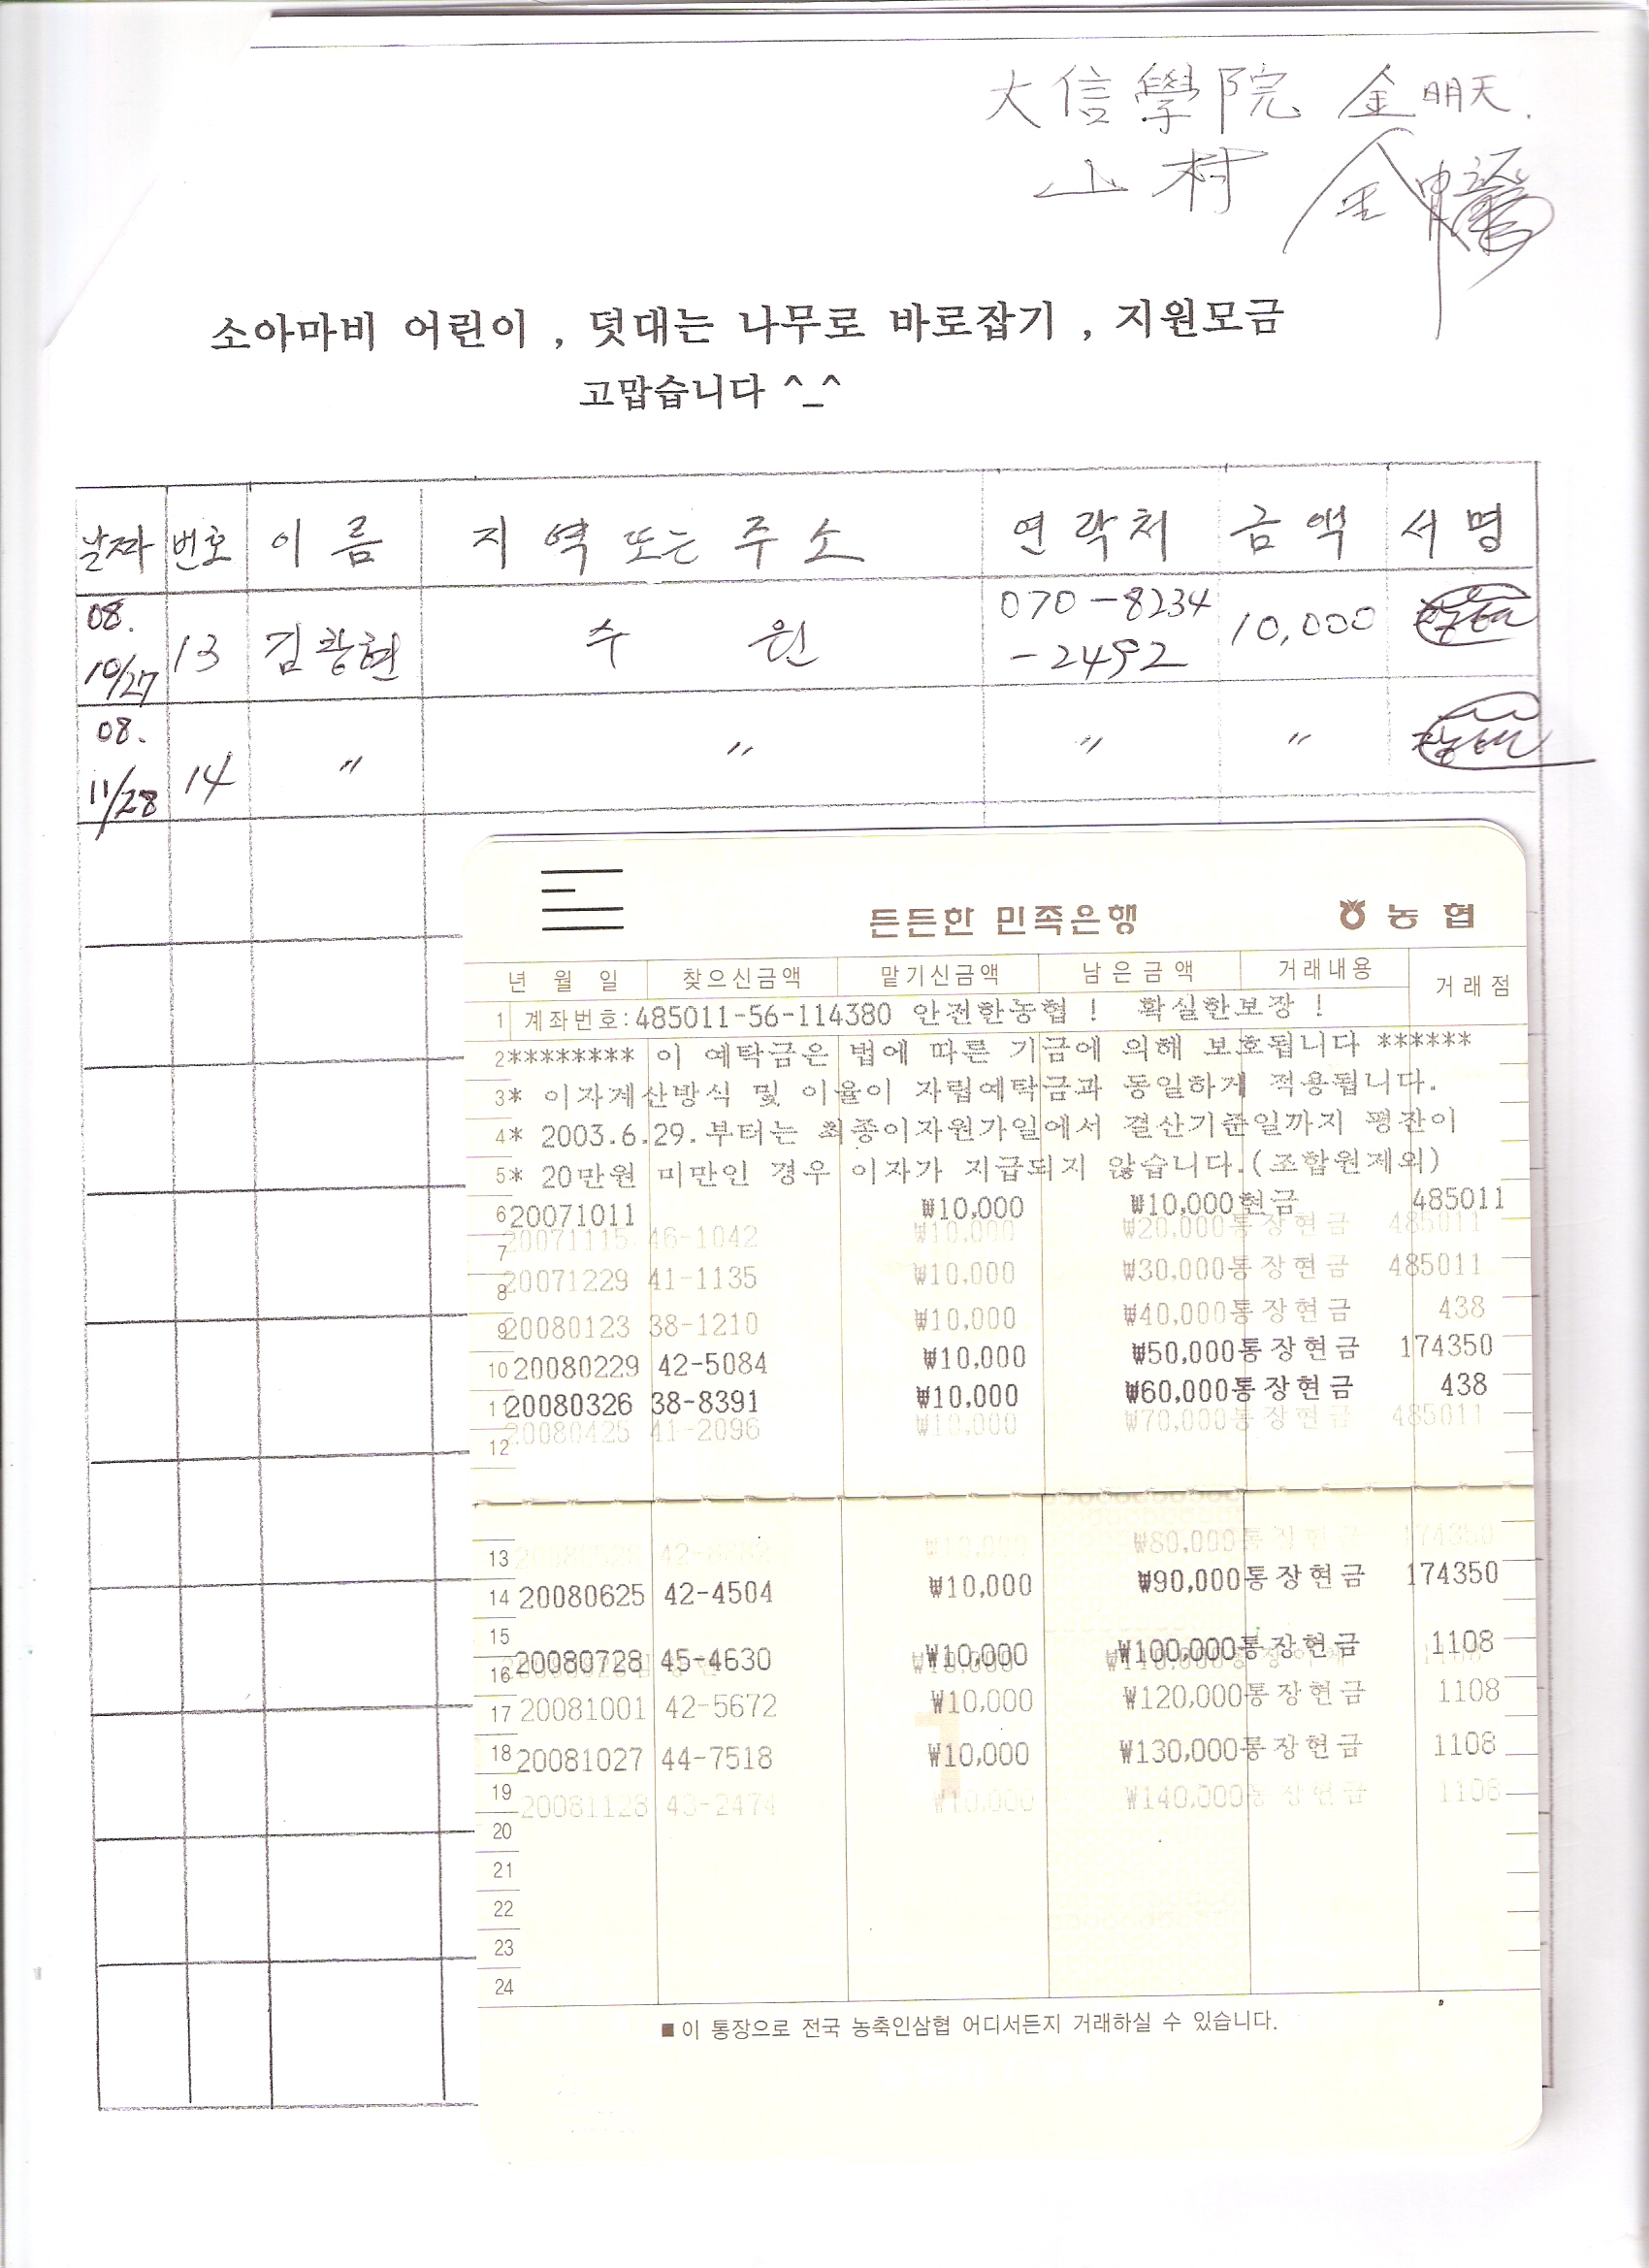 大信學院 金明天.
山村 金
소아마비 어린이 , 덧대는 나무로 바로잡기 , 지원모금
고맙습니다 ^_^
날짜 번호 이름 지역 또는 주소 연락처 금액 서명
08. 10/27 13 김창현 수원 070-8234-2492 10,000
08. 11/28 14 〃 〃 〃 〃
든든한 민족은행 농협
년 월 일 찾으신금액 맡기신금액 남은금액 거래내용 거래점
1 계좌번호:485011-56-114380 안전한농협! 확실한보장!
2******** 이 예탁금은 법에 따른 기금에 의해 보호됩니다 ******
3* 이자계산방식 및 이율이 자립예탁금과 동일하게 적용됩니다.
4* 2003.6.29.부터는 최종이자원가일에서 결산기준일까지 평잔이
5* 20만원 미만인 경우 이자가 지급되지 않습니다.(조합원제외)
6 20071011 ₩10,000 ₩10,000 현금 485011
7 20071115 46-1042 ₩10,000 ₩20,000 통장현금 485011
8 20071229 41-1135 ₩10,000 ₩30,000 통장현금 485011
9 20080123 38-1210 ₩10,000 ₩40,000 통장현금 438
10 20080229 42-5084 ₩10,000 ₩50,000 통장현금 174350
11 20080326 38-8391 ₩10,000 ₩60,000 통장현금 438
12 20080425 41-2096 ₩10,000 ₩70,000 통장현금 485011
13 ₩10,000 ₩80,000 통장현금 174350
14 20080625 42-4504 ₩10,000 ₩90,000 통장현금 174350
15
16 20080728 45-4630 ₩10,000 ₩100,000 통장현금 1108
17 20081001 42-5672 ₩10,000 ₩120,000 통장현금 1108
18 20081027 44-7518 ₩10,000 ₩130,000 통장현금 1108
19 20081128 43-2474 ₩10,000 ₩140,000 통장현금 1108
20
21
22
23
24
■ 이 통장으로 전국 농축인삼협 어디서든지 거래하실 수 있습니다.